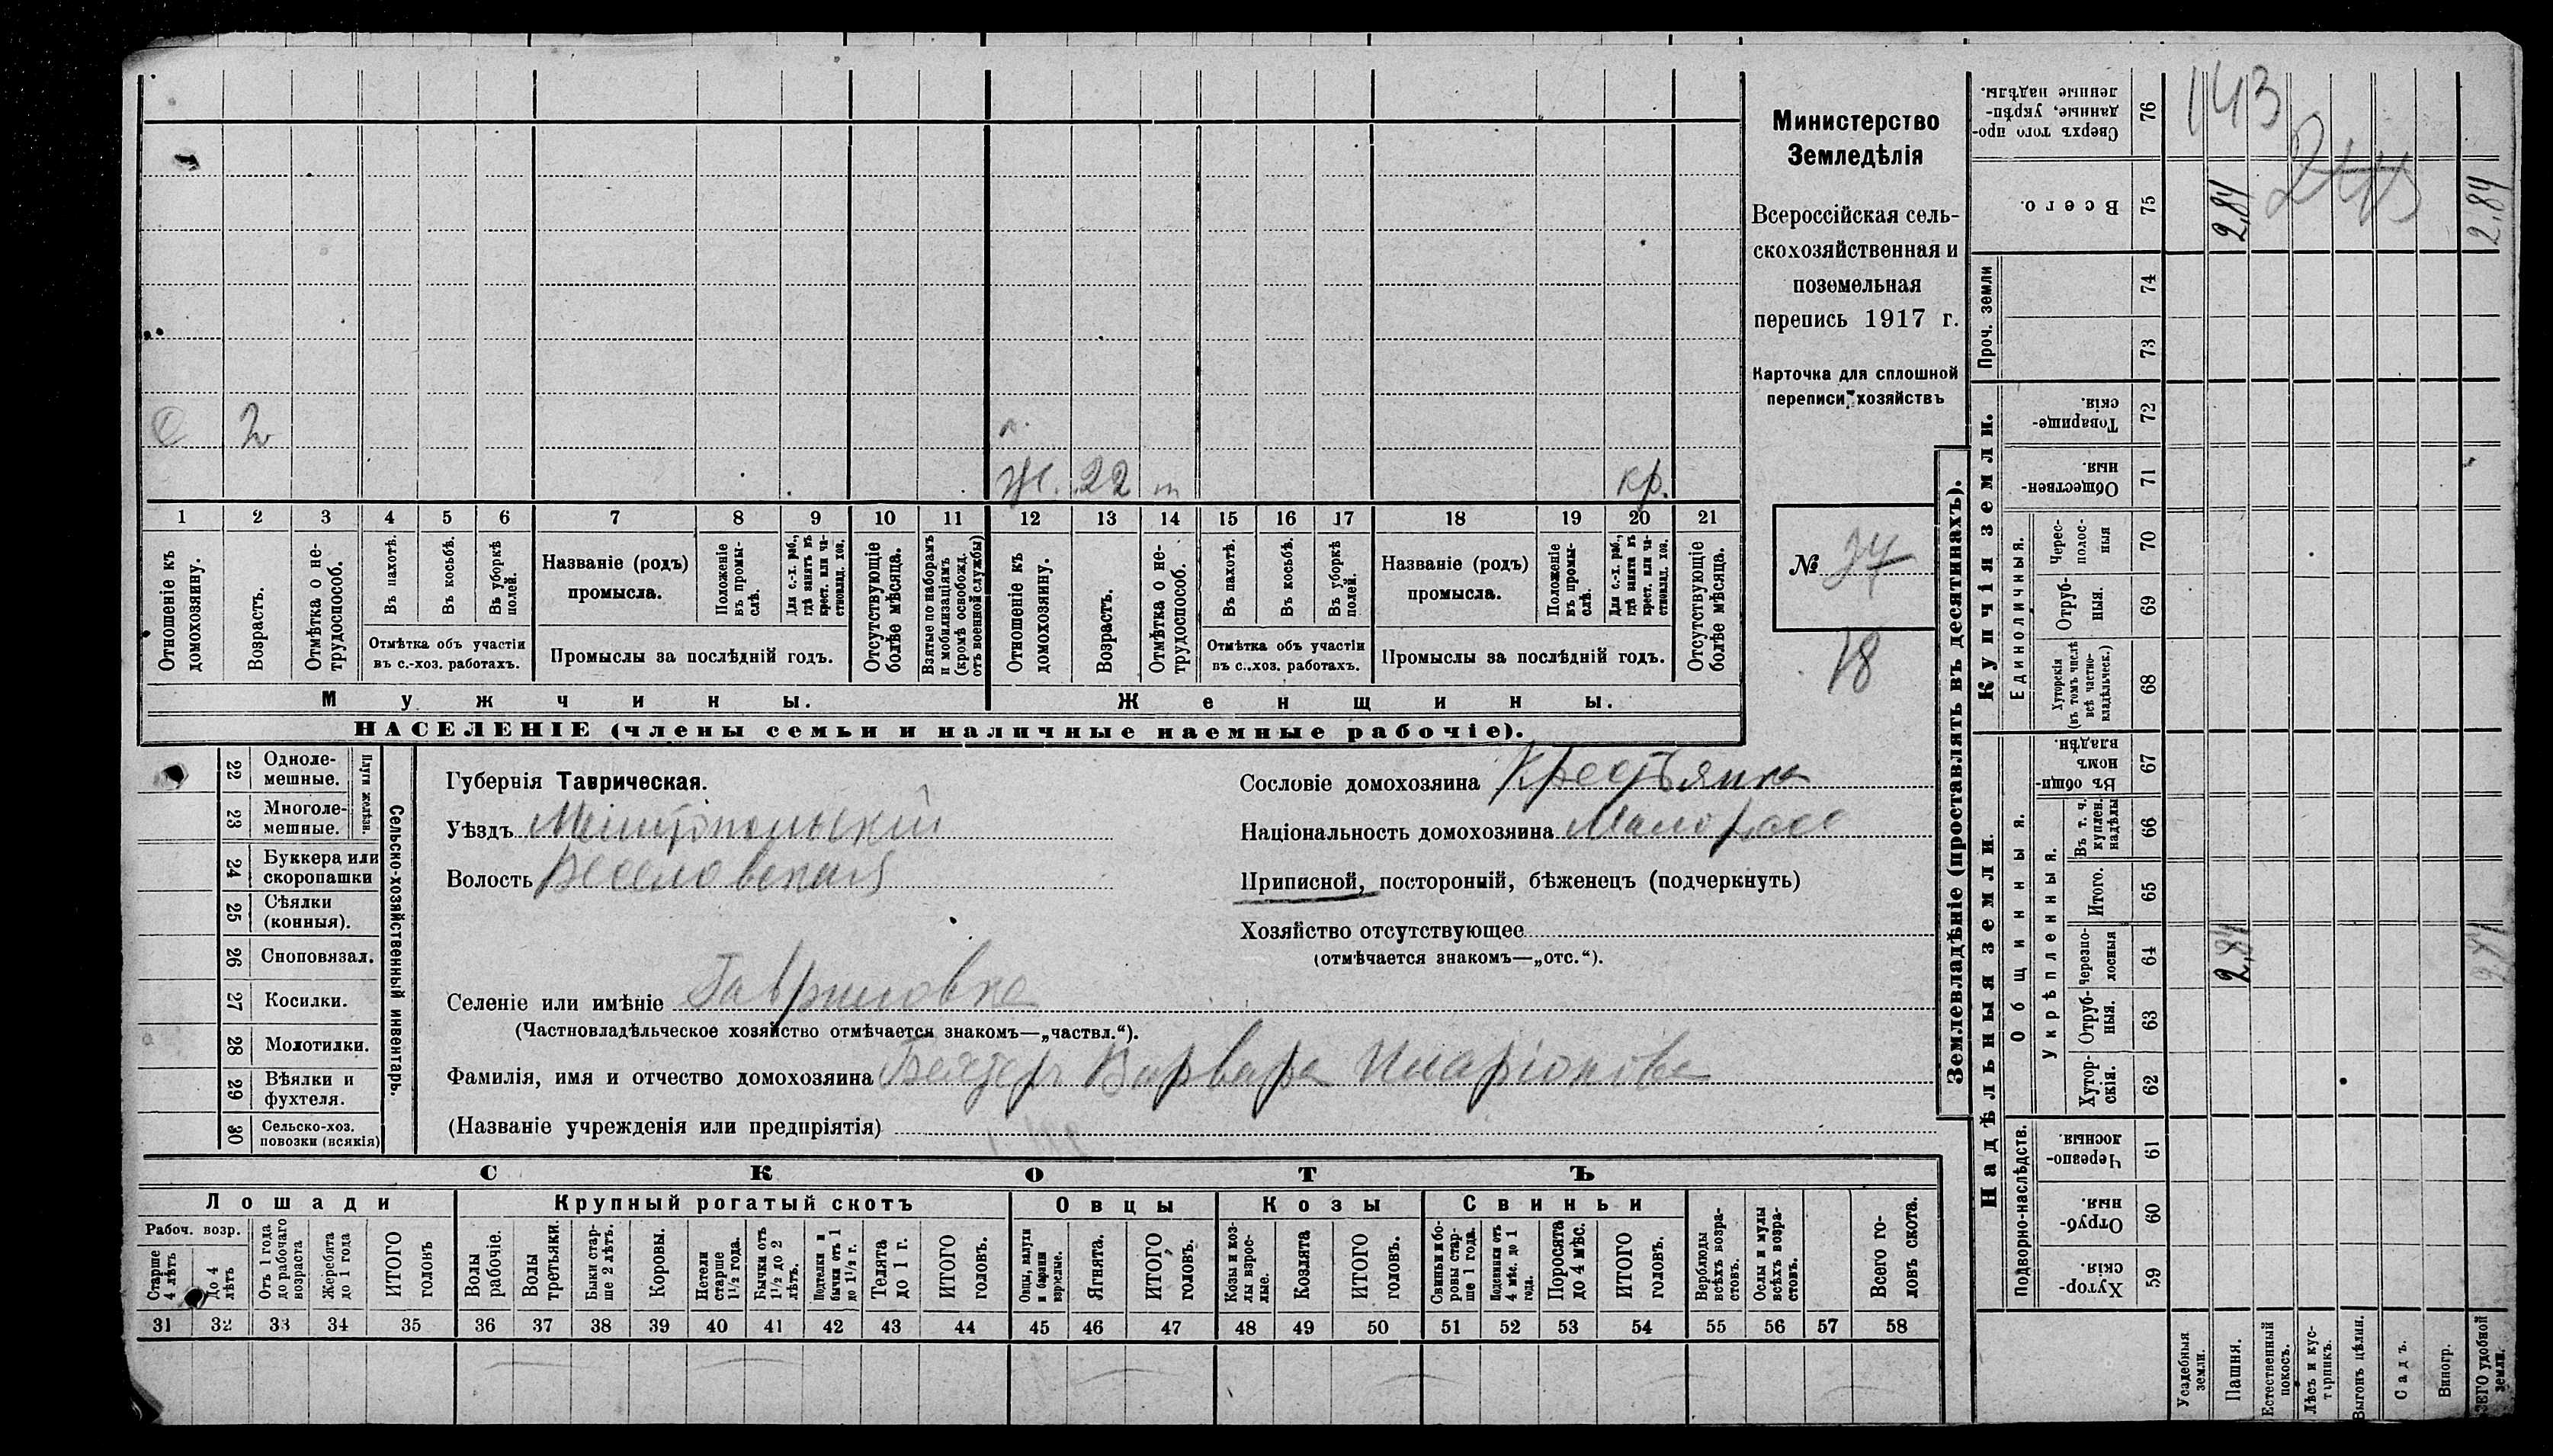 Министерство
Земледѣлія
Всероссійская сель-
скохозяйственная и
поземельная
перепись 1917 г.
Карточка для сплошной
переписи хозяйствъ
№ 34
18
143
С 2
Ж. 22 т кр.
1 2 3 4 5 6 7 8 9 10 11 12 13 14 15 16 17 18 19 20 21
Отношеніе къ домохозяину.
Возрастъ.
Отмѣтка о не-трудоспособ.
Въ пахотѣ.
Въ косьбѣ.
Въ уборкѣ полей.
Отмѣтка объ участіи
въ с.-хоз. работахъ.
Названіе (родъ)
промысла.
Положеніе въ промы-слѣ.
Для с.-х. раб., гдѣ занятъ въ крест. или ча-стновлад. хоз.
Промыслы за послѣдній годъ.
Отсутствующіе болѣе мѣсяца.
Взятые по наборамъ и мобилизаціямъ (кромѣ освобожд. отъ военной службы)
Отношеніе къ домохозяину.
Возрастъ.
Отмѣтка о не-трудоспособ.
Въ пахотѣ.
Въ косьбѣ.
Въ уборкѣ полей.
Отмѣтка объ участіи
въ с.-хоз. работахъ.
Названіе (родъ)
промысла.
Положеніе въ промы-слѣ.
Для с.-х. раб., гдѣ занята въ крест. или ча-стновлад. хоз.
Промыслы за послѣдній годъ.
Отсутствующіе болѣе мѣсяца.
Мужчины.
Женщины.
НАСЕЛЕНІЕ (члены семьи и наличные наемные рабочіе).
22 Одноле-мешные.
23 Многоле-мешные.
Плуги желѣзн.
24 Буккера или скоропашки
25 Сѣялки (конныя).
26 Сноповязал.
27 Косилки.
28 Молотилки.
29 Вѣялки и фухтеля.
30 Сельско-хоз. повозки (всякія)
Сельско-хозяйственный инвентарь.
Губернія Таврическая.
Уѣздъ Мелитопольскій
Волость Веселовская
Сословіе домохозяина Крестьянка
Національность домохозяина Малоросс
Приписной, посторонній, бѣженецъ (подчеркнуть)
Хозяйство отсутствующее
(отмѣчается знакомъ—„отс.“).
Селеніе или имѣніе Гавриловка
(Частновладѣльческое хозяйство отмѣчается знакомъ—„частвл.“).
Фамилія, имя и отчество домохозяина Варвара Иларіонова
(Названіе учрежденія или предпріятія)
СКОТЪ
Лошади
Крупный рогатый скотъ
Овцы
Козы
Свиньи
Рабоч. возр.
Старше 4 лѣтъ
До 4 лѣтъ
Отъ 1 года до рабочаго возраста
Жеребята до 1 года
ИТОГО головъ
Волы рабочіе.
Волы третьяки.
Быки стар-ше 2 лѣтъ.
Коровы.
Нетели старше 1½ года.
Бычки отъ 1½ до 2 лѣтъ.
Подтелки и бычки отъ 1 до 1½ г.
Телята до 1 г.
ИТОГО головъ.
Овцы, валухи и бараны взрослые.
Ягнята.
ИТОГО головъ.
Козы и коз-лы взрос-лые.
Козлята
ИТОГО головъ.
Свиньи и бо-ровы стар-ше 1 года.
Подсвинки отъ 4 мѣс. до 1 года.
Поросята до 4 мѣс.
ИТОГО головъ.
Верблюды всѣхъ возра-стовъ.
Ослы и мулы всѣхъ возра-стовъ.
Всего го-ловъ скота.
31 32 33 34 35 36 37 38 39 40 41 42 43 44 45 46 47 48 49 50 51 52 53 54 55 56 57 58
Землевладѣніе (проставлять въ десятинахъ).
Надѣльныя земли.
Купчія земли.
Проч. земли
Подворно-наслѣдств.
Общинныя.
Укрѣпленныя.
Единоличныя.
76 Сверхъ того про-данные, укрѣп-ленные надѣлы.
75 Всего. 2,84 2,84
74
73
72 Товарище-скія.
71 Обществен-ныя.
70 Черес-полос-ныя
69 Отруб-ныя.
68 Хуторскія (въ томъ числѣ всѣ частно-владѣльческ.)
67 Въ общи-номъ владѣн.
66 Въ т. ч. куплен. надѣлы
65 Итого.
64 Черезпо-лосныя 2,84 2,84
63 Отруб-ныя.
62 Хутор-скія.
61 Черезпо-лосныя.
60 Отруб-ныя.
59 Хутор-скія.
Усадебныя земли.
Пашня.
Естественный покосъ.
Лѣсъ и кус-тарникъ.
Выгонъ цѣлин.
Садъ.
Виногр.
ВСЕГО удобной земли.